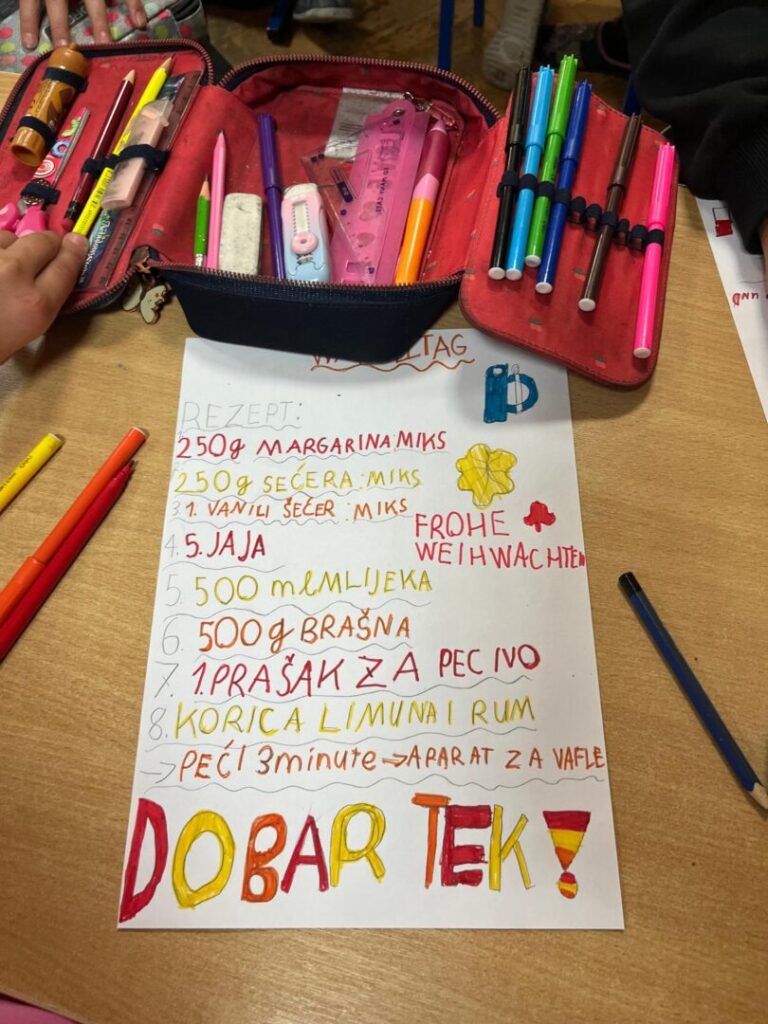 REZEPT:
250g MARGARINA:MIKS
250g SEĆERA:MIKS
3. 1. VANILI ŠEĆER :MIKS
FROHE
WEIHWACHTEN
4. 5.JAJA
5. 500 mlMLIJEKA
6. 500g BRAŠNA
7. 1.PRAŠAK ZA PECIVO
8. KORICA LIMUNA I RUM
→ PEĆI 3minute → APARAT ZA VAFLE
DOBAR TEK!
UND